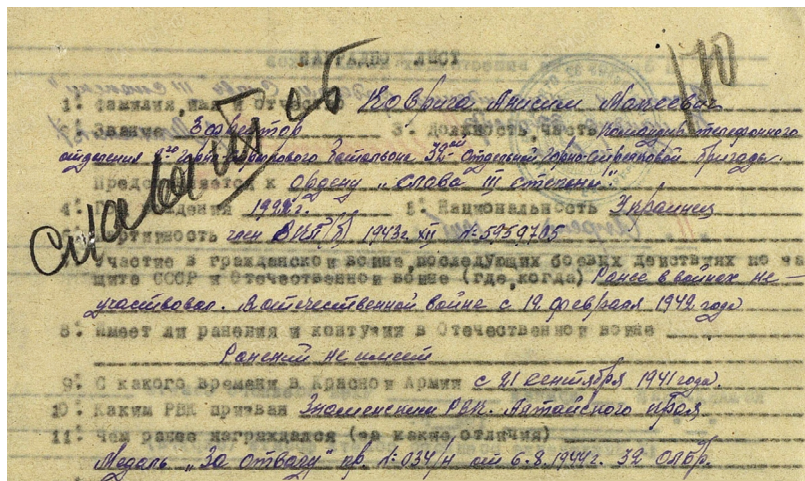 НАГРАДНОЙ ЛИСТ
1. Фамилия, имя и отчество Коврига Анисим Моисеевич
2. Звание Ефрейтор 3. Должность, часть командир телефонного
отделения 1го горно-стрелкового батальона 32ой Отдельной Горно-Стрелковой бригады.
Представляется к Ордену „Слава III степени".
4. рождения 1922г. 5. Национальность Украинец
6. Партийность член ВКП(б) 1943г. XII № 5959705
Участие в гражданской войне, последующих боевых действиях по за
щите СССР и Отечественной войне (где, когда) Ранее в войнах не-
участвовал. В отечественной войне с 12 февраля 1942 года
8. Имеет ли ранения и контузии в Отечественной войне
Ранений не имеет
9. С какого времени в Красной Армии с 21 сентября 1941 года.
10. Каким РВК призван Знаменским РВК. Алтайского края
11. Чем ранее награждался (за какие отличия)
Медаль „За отвагу" пр. №: 034/н от 6.8.1944г. 32 ОГСбр.